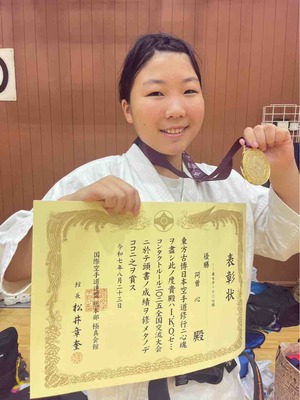 表彰状
優勝
阿曽 心 殿
東方古博日本空手道修行ニ心魂
ヲ盡シ此ノ度貴殿ハI.K.O.セミ
コンタクトルール二〇二五全国交流大会
ニ於テ頭書ノ成績ヲ修メタノデ
ココニ之ヲ賞ス
令和七年八月二十三日
国際空手道連盟 総本部 極真会館
館長 松井章奎